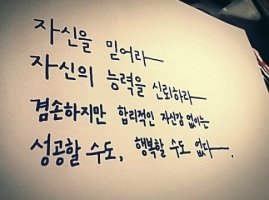 자신을 믿어라—
자신의 능력을 신뢰하라—
겸손하지만 합리적인 자신감 없이는
성공할 수도, 행복할 수도 없다—.